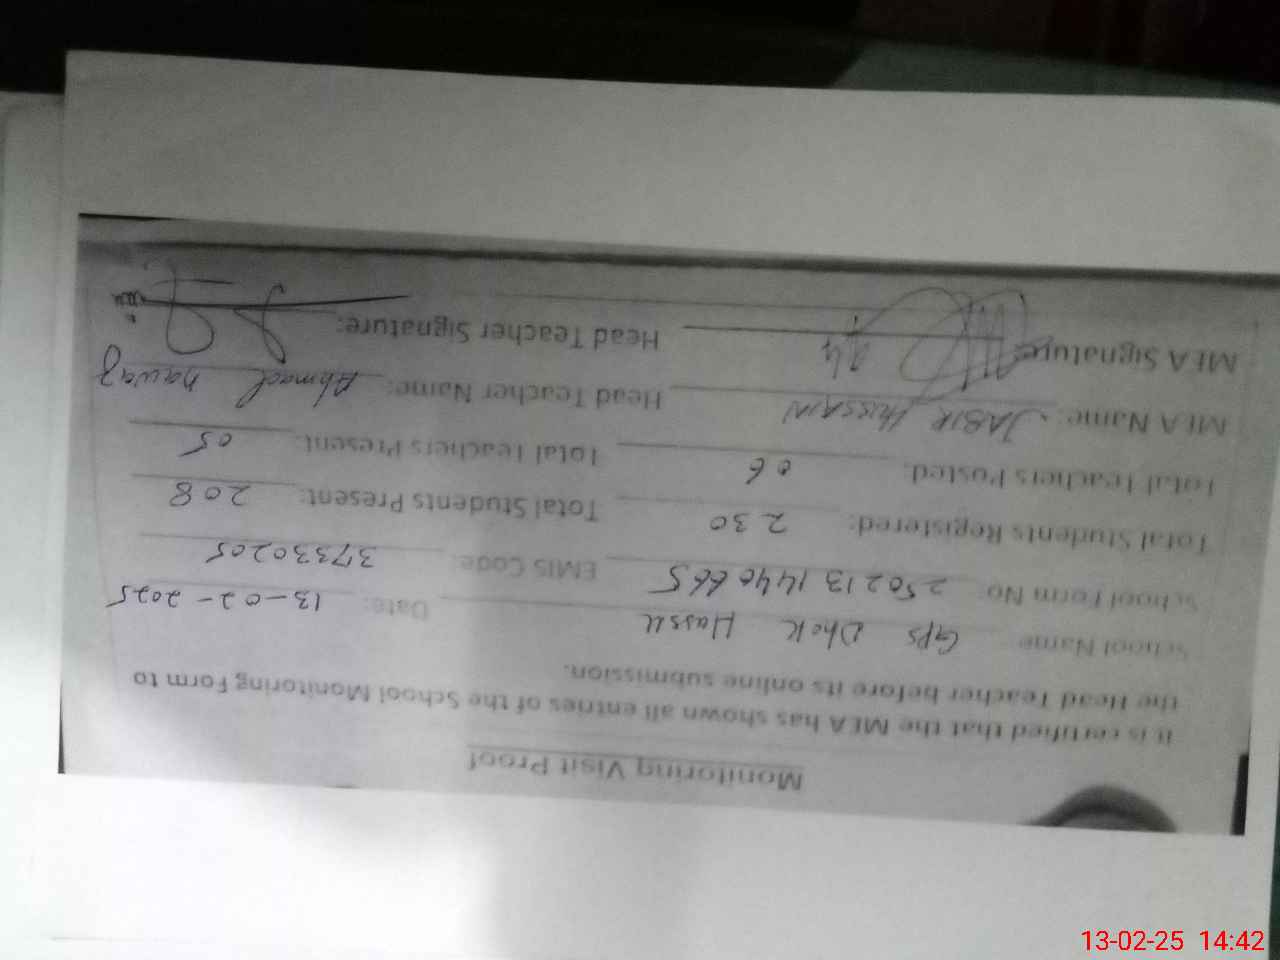 Monitoring Visit Proof
It is certified that the MEA has shown all entries of the School Monitoring Form to
the Head Teacher before its online submission.
School Name GPS Dhok Hassu Date: 13-02-2025
School Form No: 250213144066 5 EMIS Code: 37330205
Total Students Registered: 230 Total Students Present: 208
Total Teachers Posted: 06 Total Teachers Present: 05
MEA Name: JABIR HUSSAIN Head Teacher Name: Ahmad nawaz
MEA Signature: 14 Head Teacher Signature:
13-02-25 14:42